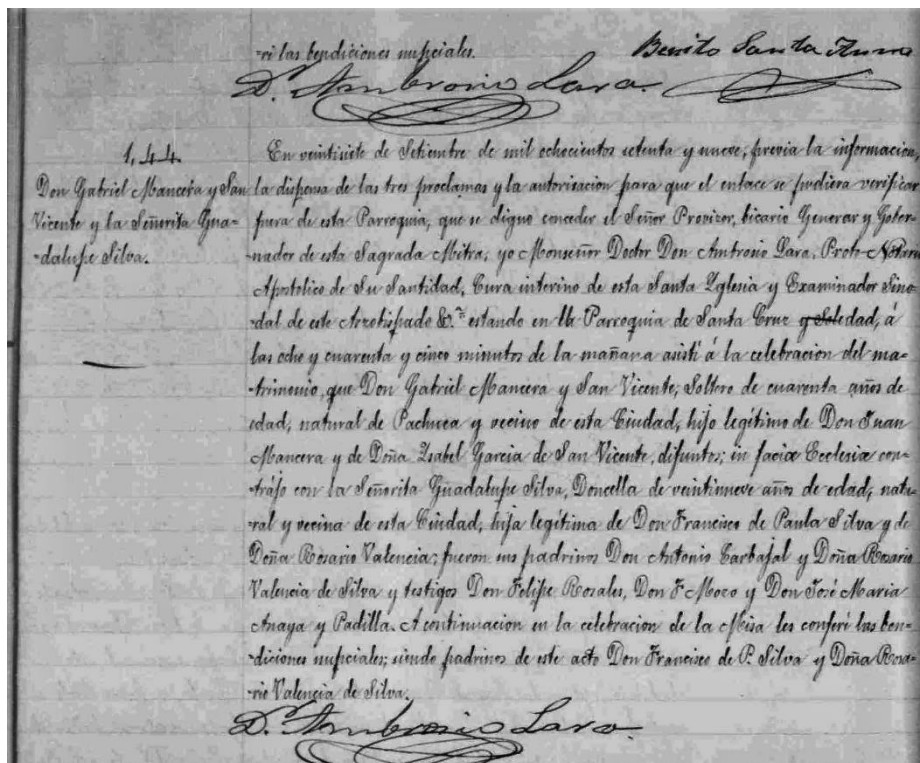 -ri las bendiciones nupciales.
Benito Santa Anna
Dr Ambrosio Lara.
1,44.
Don Gabriel Mancera y San
Vicente y la Señorita Gua-
-dalupe Silva.
En veintisiete de Setiembre de mil ochocientos setenta y nueve, previa la informacion,
la dispensa de las tres proclamas y la autorisacion para que el enlace se pudiera verificar
fuera de esta Parroquia, que se digno conceder el Señor Provisor, bicario Generar y Gober-
-nador de esta Sagrada Mitra; yo Monseñor Doctor Don Ambrosio Lara, Proto-Notario
Apostolico de Su Santidad, Cura interino de esta Santa Yglesia y Examinador Sino-
-dal de este Arzobispado &.ª estando en la Parroquia de Santa Cruz y Soledad, á
las ocho y cuarenta y cinco minutos de la mañana asisti á la celebracion del ma-
-trimonio, que Don Gabriel Mancera y San Vicente, Soltero de cuarenta años de
edad, natural de Pachuca y vecino de esta Ciudad, hijo legítimo de Don Juan
Mancera y de Doña Ysabel Garcia de San Vicente, difuntos; in faciæ Ecclesiæ con-
-trájo con la Señorita Guadalupe Silva, Doncella de veintinueve años de edad, natu-
-ral y vecina de esta Ciudad, hija legítima de Don Francisco de Paula Silva y de
Doña Rosario Valencia; fueron sus padrinos Don Antonio Carbajal y Doña Rosario
Valencia de Silva y testigos Don Felipe Rosales, Don F Moro y Don José Maria
Anaya y Padilla. A continuacion en la celebracion de la Misa les conferí las ben-
-diciones nupciales; siendo padrinos de este acto Don Francisco de P. Silva y Doña Rosa-
-rio Valencia de Silva.
Dr Ambrosio Lara.